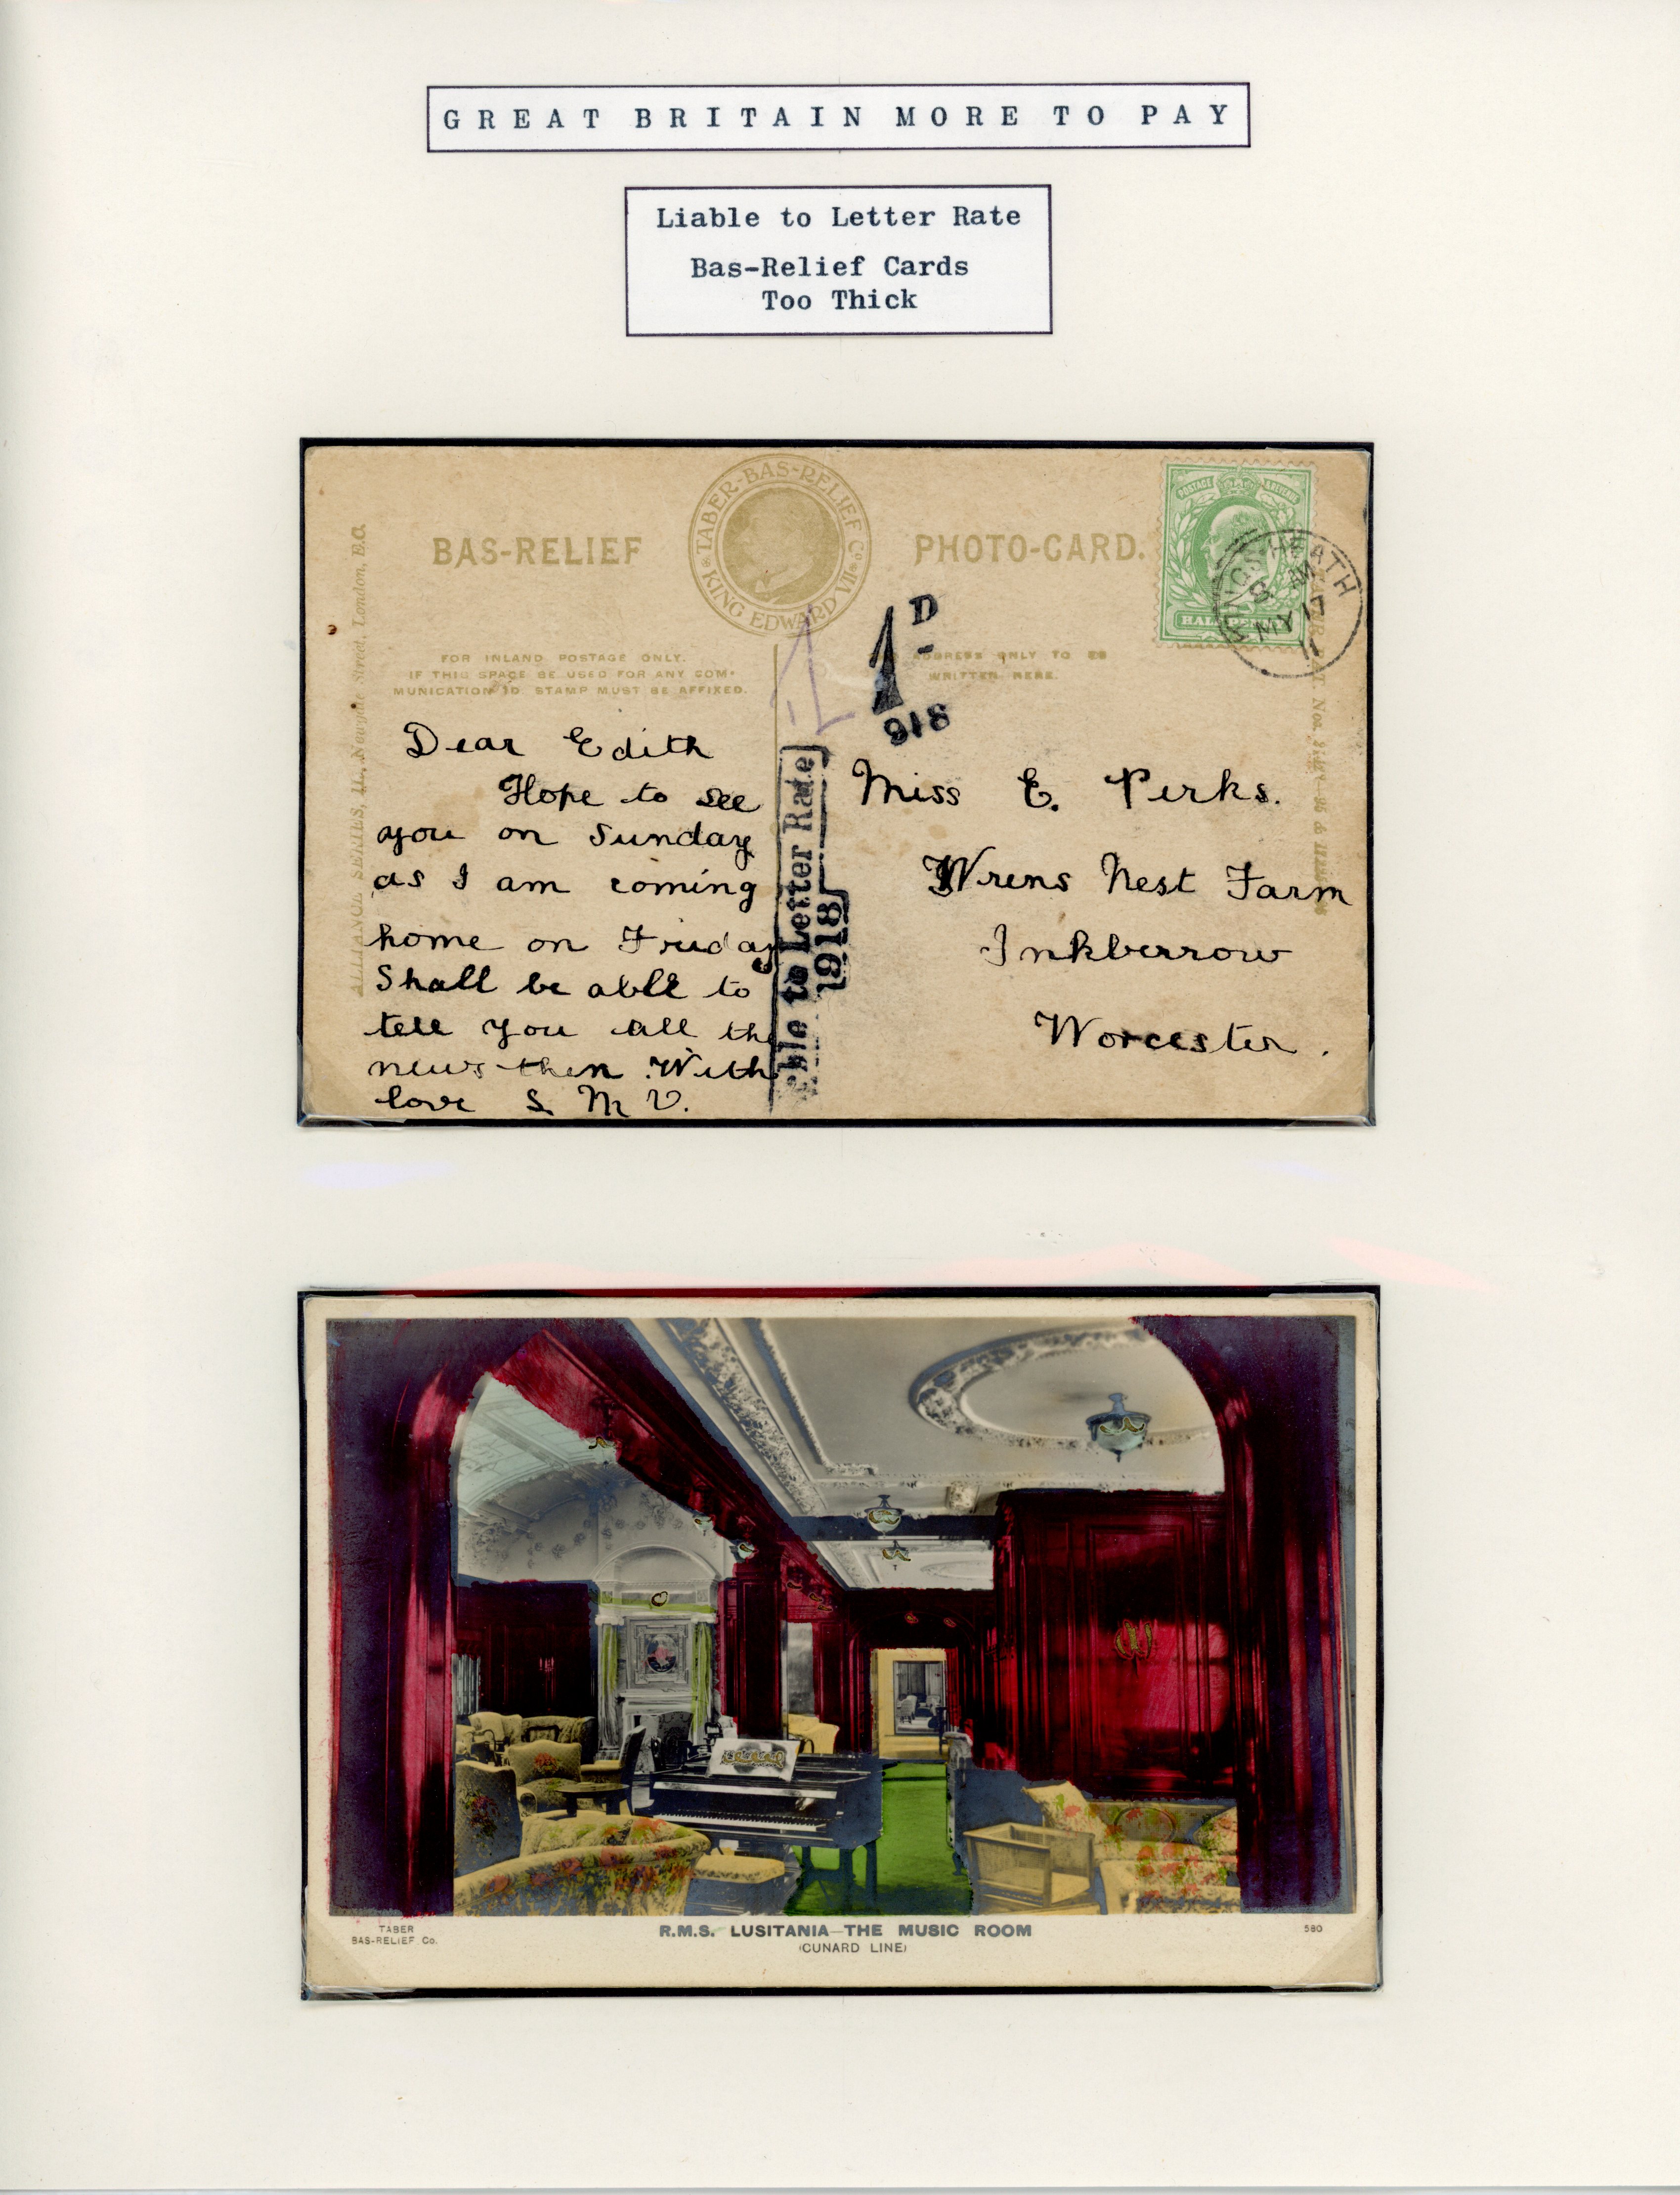 GREAT BRITAIN MORE TO PAY
Liable to Letter Rate
Bas-Relief Cards
Too Thick
TABER-BAS-RELIEF Co.
KING EDWARD VII
BAS-RELIEF
PHOTO-CARD.
POSTAGE REVENUE
HALFPENNY
KINGS HEATH
MY 17
11
ALLIANCE SERIES, 11, Newgate Street, London, E.C.
FOR INLAND POSTAGE ONLY.
IF THIS SPACE BE USED FOR ANY COM-
MUNICATION 1D. STAMP MUST BE AFFIXED.
ADDRESS ONLY TO BE
WRITTEN HERE.
1
1D
918
Dear Edith
Hope to see
you on Sunday
as I am coming
home on Friday
Shall be able to
tell you all the
news then With
love S M V.
able to Letter Rate
1918
Miss E. Perks.
Wrens Nest Farm
Inkberrow
Worcester.
TABER
BAS-RELIEF Co.
R.M.S. LUSITANIA—THE MUSIC ROOM
(CUNARD LINE)
580